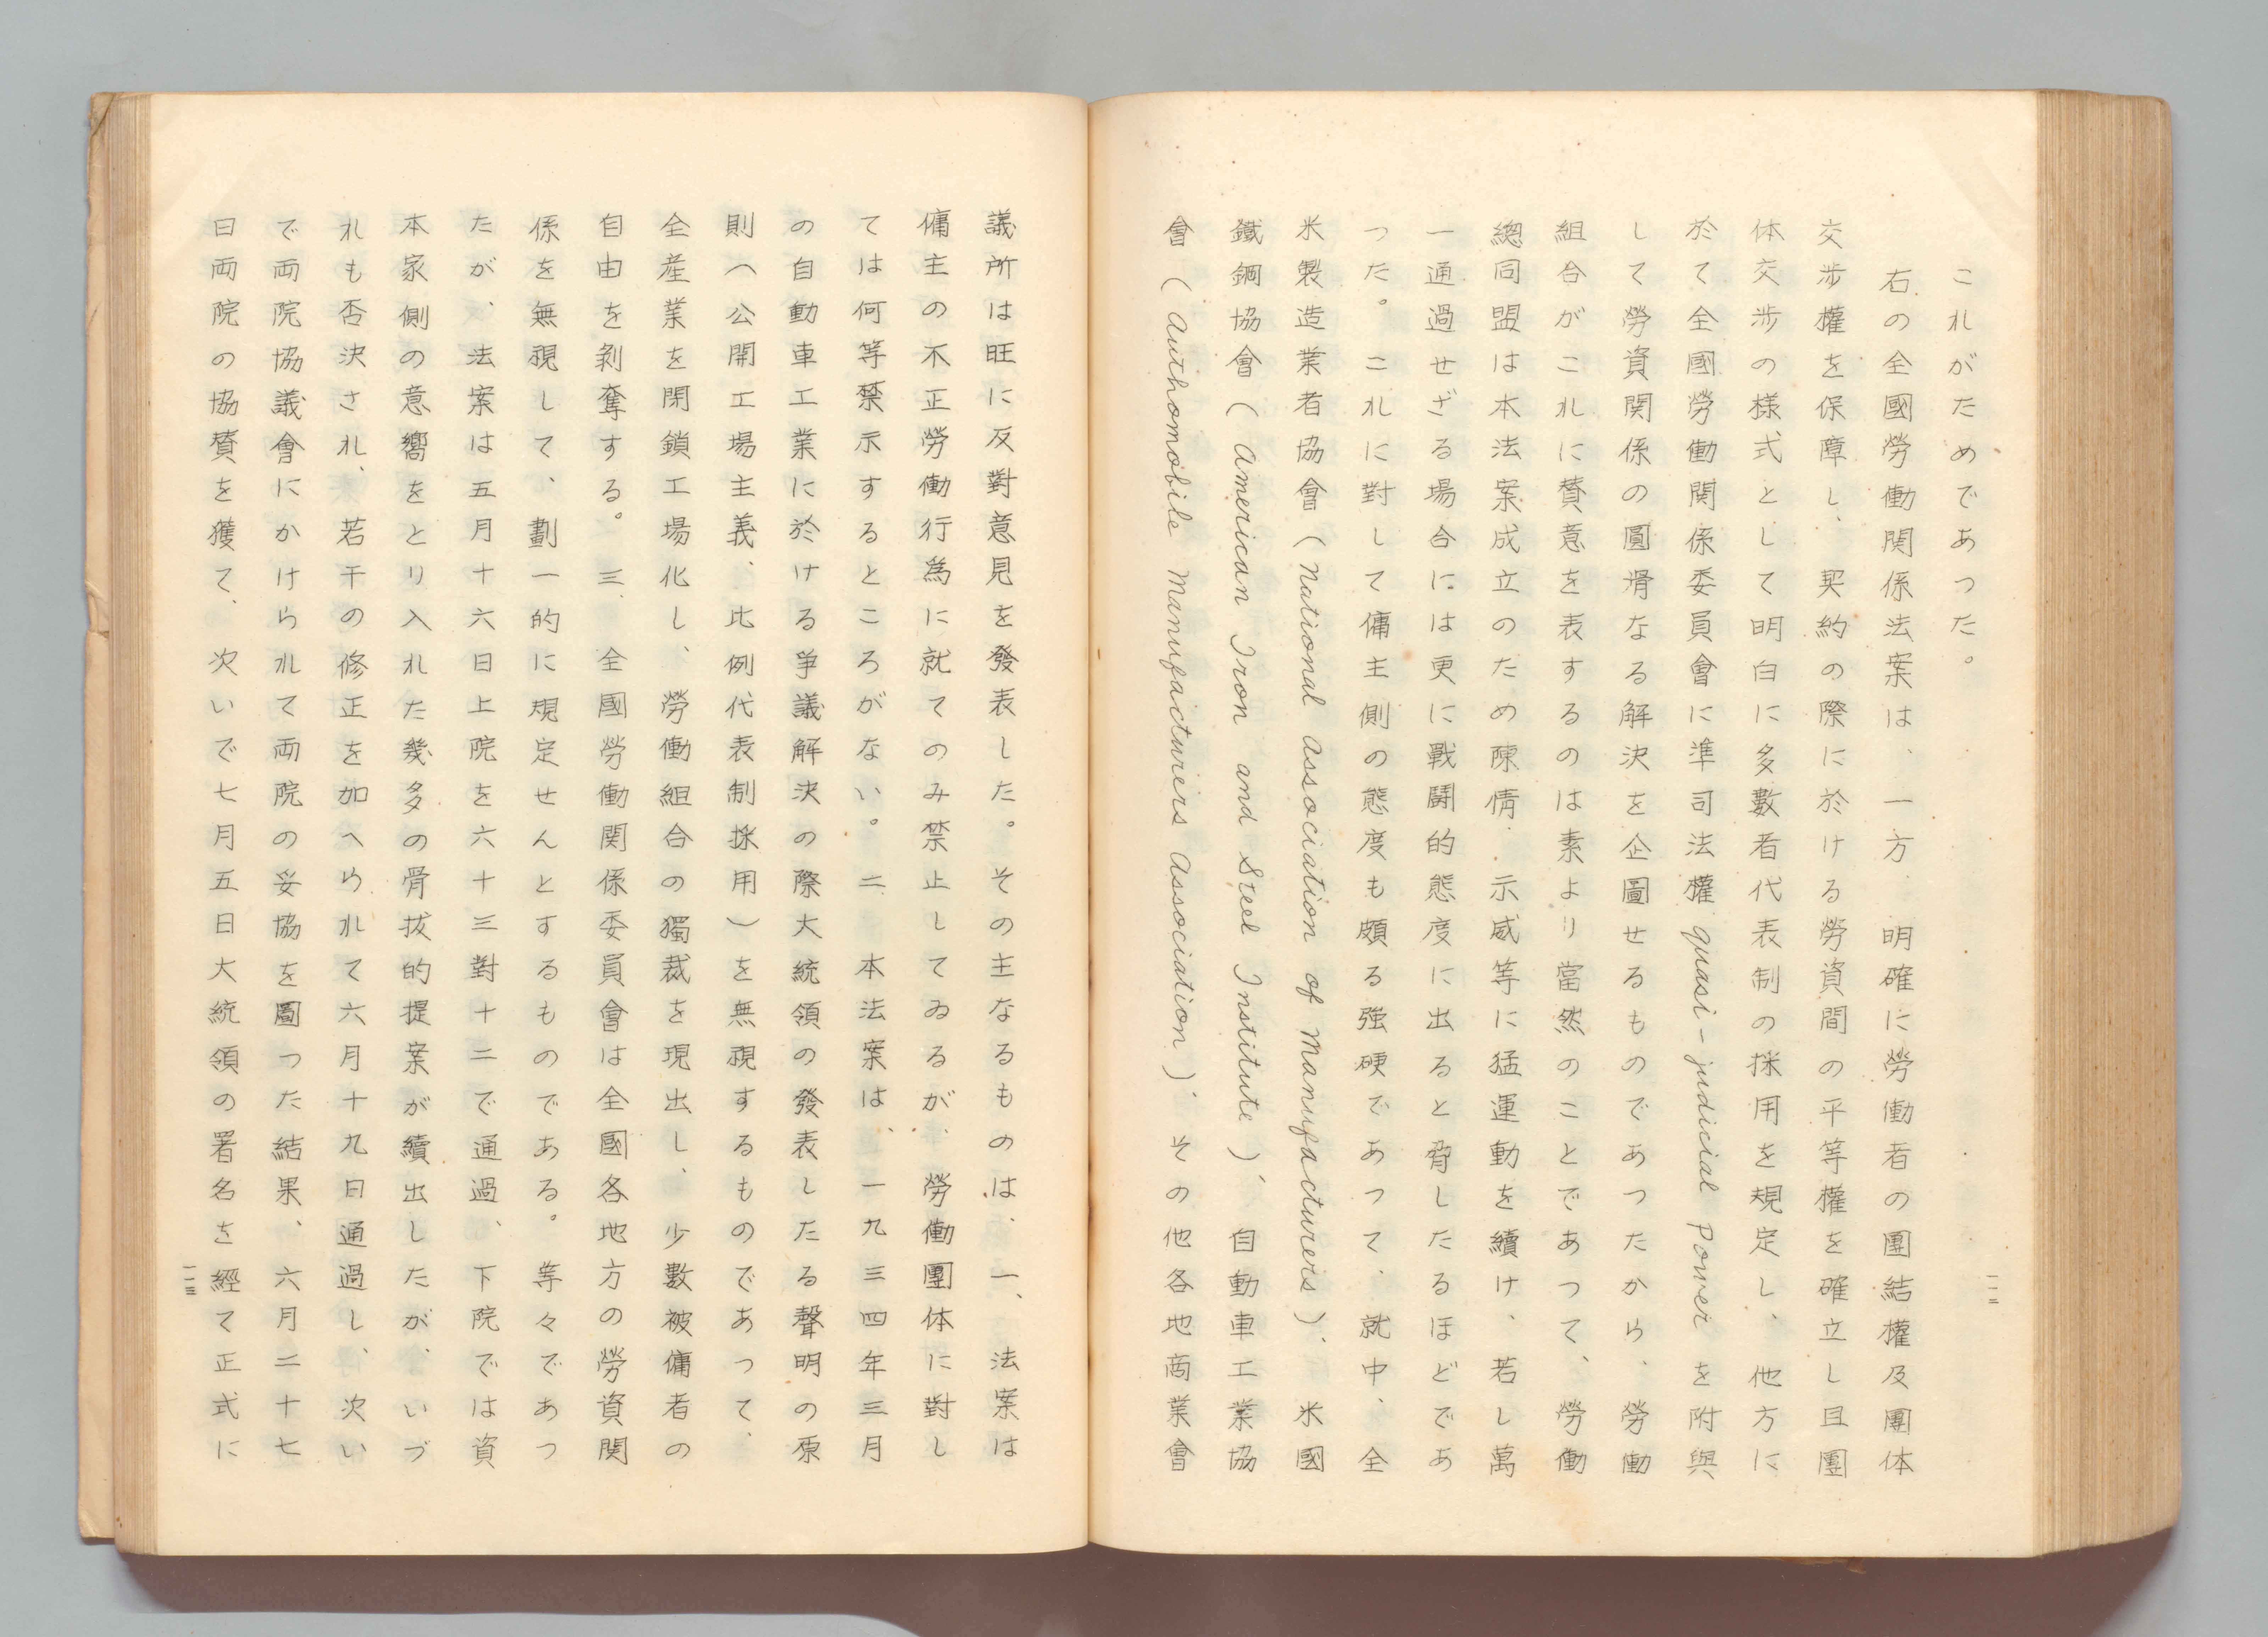 これがためであつた。
右の全國勞働関係法案は、一方、明確に勞働者の團結權及團体
交渉權を保障し、契約の際に於ける勞資間の平等權を確立し且團
体交渉の様式として明白に多數者代表制の採用を規定し、他方に
於て全國勞働関係委員會に準司法權 quasi-judicial Power を附與
して勞資関係の圓滑なる解決を企圖せるものであつたから、勞働
組合がこれに賛意を表するのは素より當然のことであつて、勞働
總同盟は本法案成立のため陳情、示威等に猛運動を續け、若し萬
一通過せざる場合には更に戰鬪的態度に出ると脅したるほどであ
つた。これに對して傭主側の態度も頗る强硬であつて、就中、全
米製造業者協會(National Association of Manufacturers)、米國
鐵鋼協會(American Iron and Steel Institute)、自動車工業協
會(Authomobile Manufacturers Association)、その他各地商業會
一一二
議所は旺に反對意見を發表した。その主なるものは、一、法案は
傭主の不正勞働行為に就てのみ禁止してゐるが、勞働團体に對し
ては何等禁示するところがない。二、本法案は、一九三四年三月
の自動車工業に於ける爭議解決の際大統領の發表したる聲明の原
則(公開工場主義、比例代表制採用)を無視するものであつて、
全産業を閉鎖工場化し、勞働組合の獨裁を現出し、少數被傭者の
自由を剝奪する。三、全國勞働関係委員會は全國各地方の勞資関
係を無視して、劃一的に規定せんとするものである。等々であつ
たが、法案は五月十六日上院を六十三對十二で通過、下院では資
本家側の意嚮をとり入れた幾多の骨拔的提案が續出したが、いづ
れも否決され、若干の修正を加へられて六月十九日通過し、次い
で両院協議會にかけられて両院の妥協を圖つた結果、六月二十七
日両院の協賛を獲て、次いで七月五日大統領の署名を經て正式に
一一三